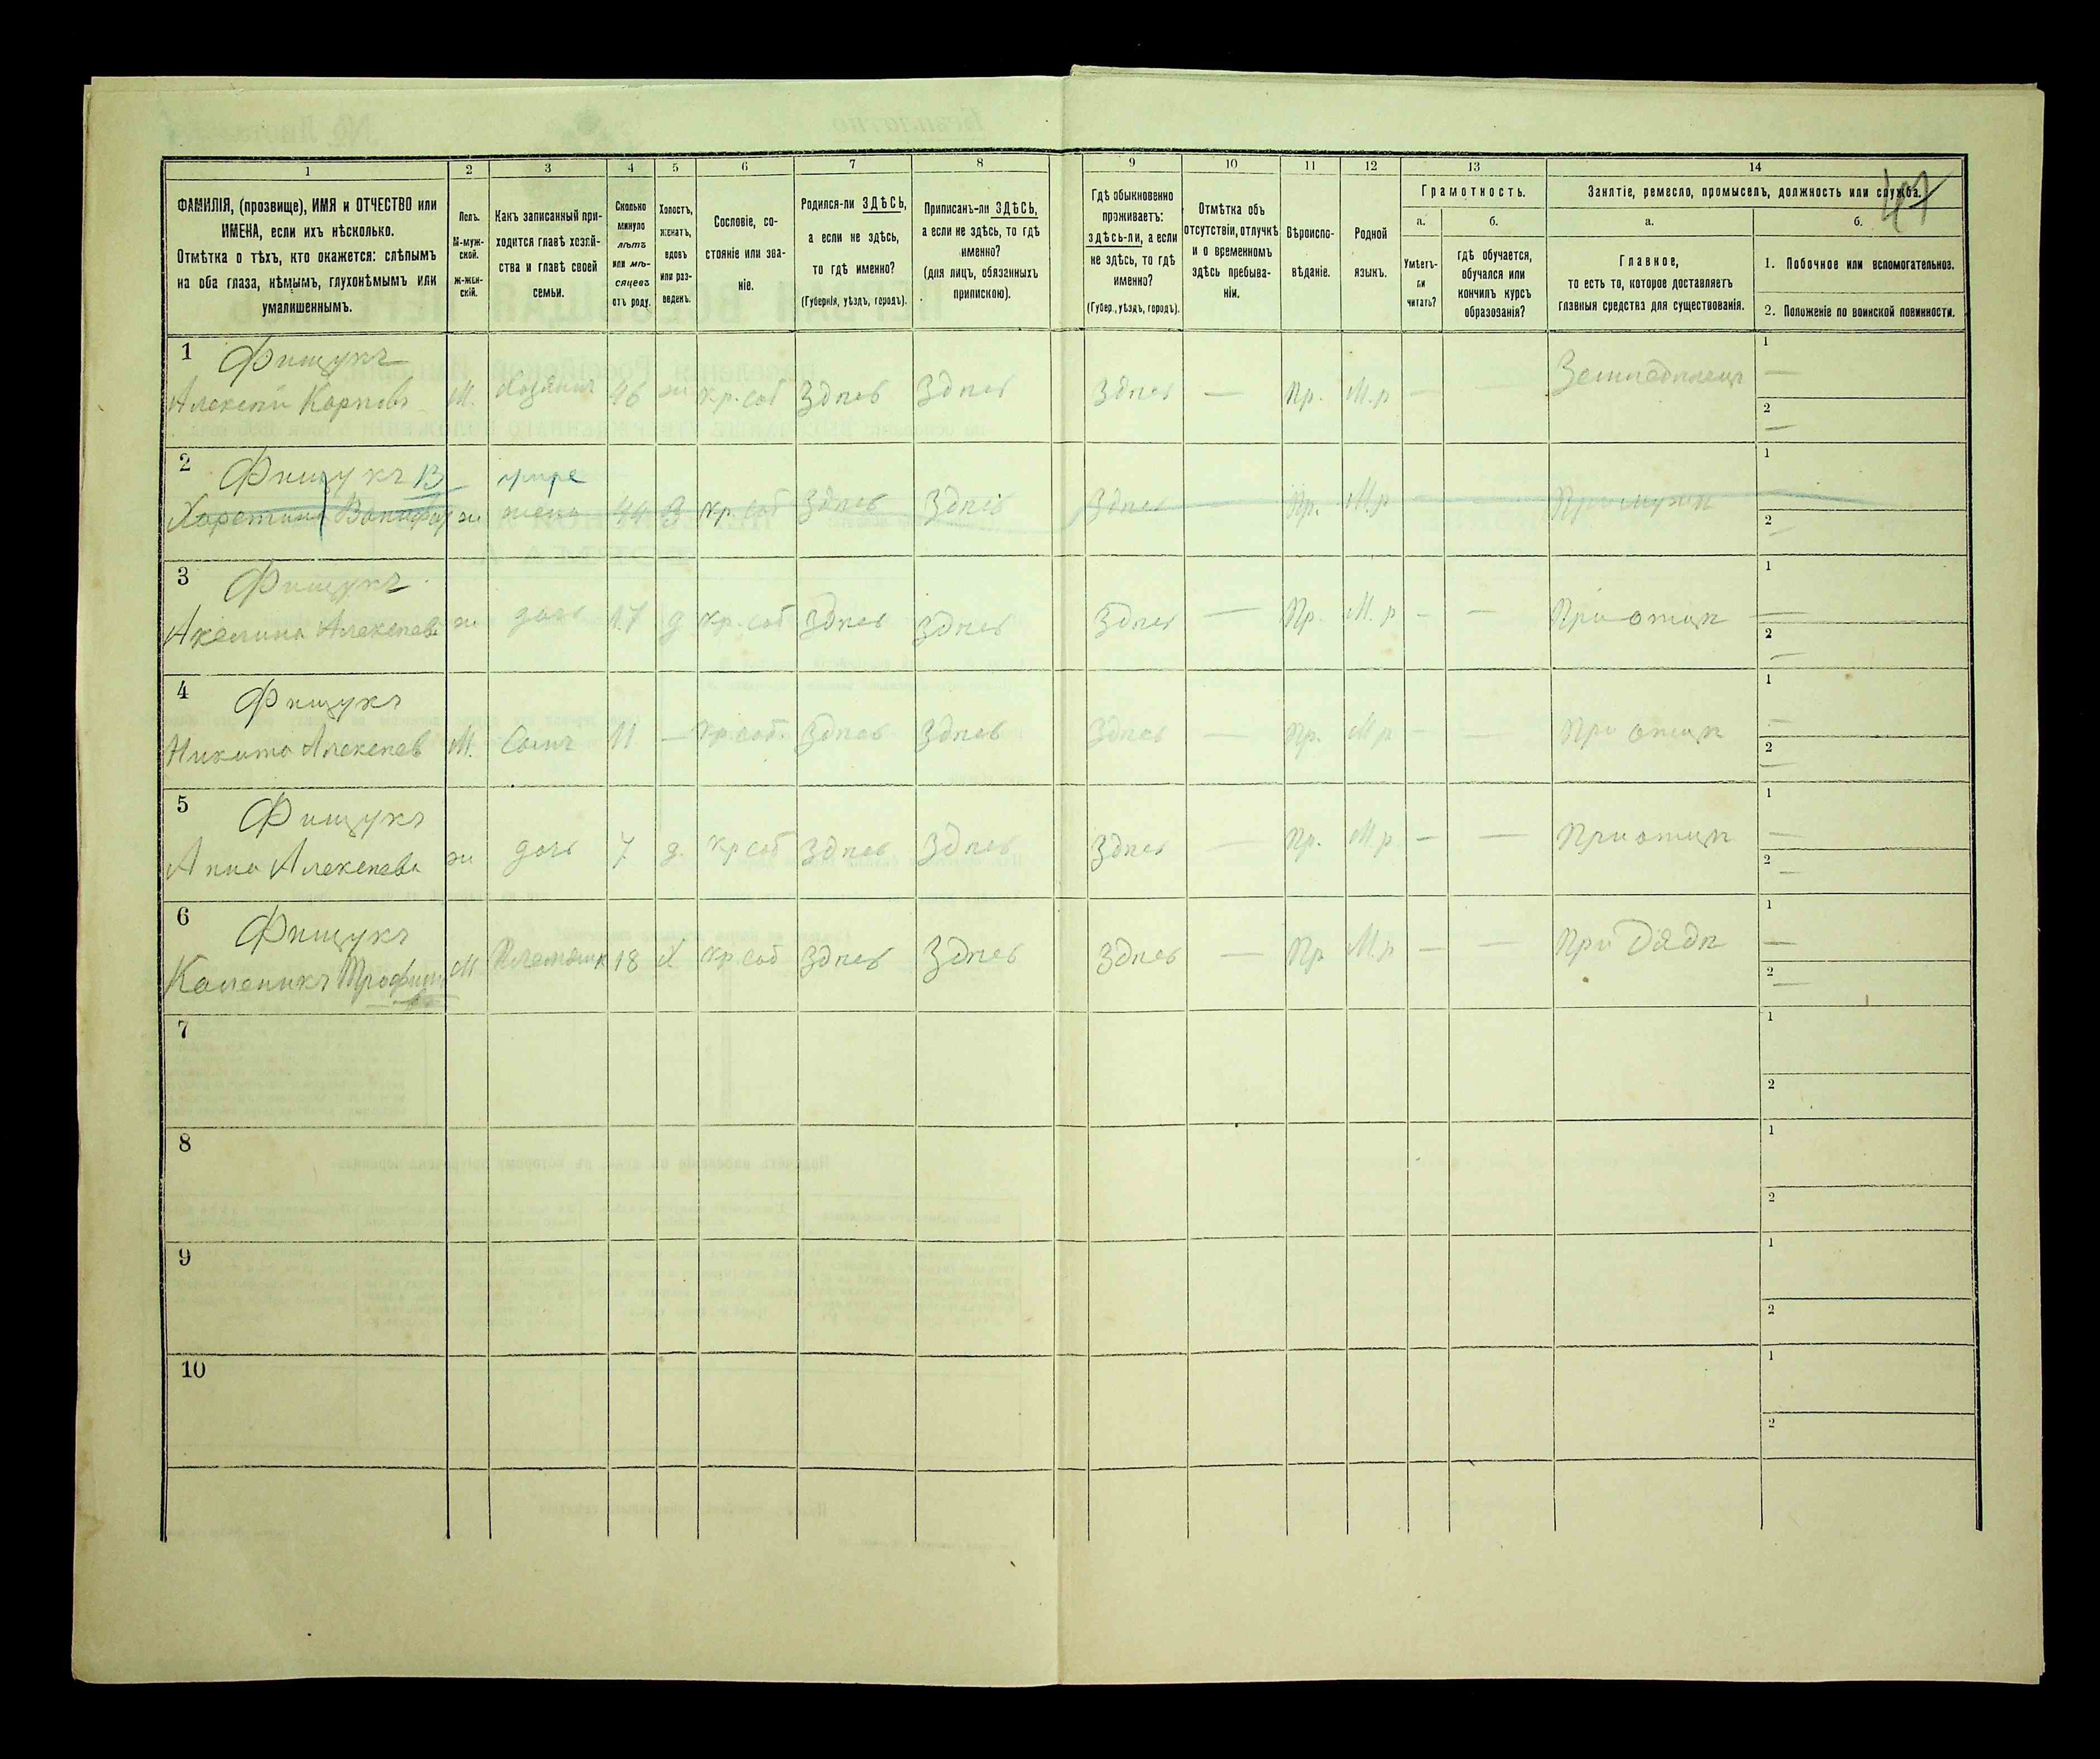 1 2 3 4 5 6 7 8 9 10 11 12 13 14
ФАМИЛІЯ, (прозвище), ИМЯ и ОТЧЕСТВО или
ИМЕНА, если ихъ нѣсколько.
Отмѣтка о тѣхъ, кто окажется: слѣпымъ
на оба глаза, нѣмымъ, глухонѣмымъ или
умалишеннымъ.
Полъ.
М-муж-
ской.
ж-жен-
скій.
Какъ записанный при-
ходится главѣ хозяй-
ства и главѣ своей
семьи.
Сколько
минуло
лѣтъ
или мѣ-
сяцевъ
отъ роду.
Холостъ,
женатъ,
вдовъ
или раз-
веденъ.
Сословіе, со-
стояніе или зва-
ніе.
Родился-ли ЗДѢСЬ,
а если не здѣсь,
то гдѣ именно?
(Губернія, уѣздъ, городъ).
Приписанъ-ли ЗДѢСЬ,
а если не здѣсь, то гдѣ
именно?
(для лицъ, обязанныхъ
припискою).
Гдѣ обыкновенно
проживаетъ:
здѣсь-ли, а если
не здѣсь, то гдѣ
именно?
(Губер., уѣздъ, городъ).
Отмѣтка объ
отсутствіи, отлучкѣ
и о временномъ
здѣсь пребыва-
ніи.
Вѣроиспо-
вѣданіе.
Родной
языкъ.
Грамотность.
а.
Умѣетъ-
ли
читать?
б.
гдѣ обучается,
обучался или
кончилъ курсъ
образованія?
Занятіе, ремесло, промыселъ, должность или служба.
47
а.
Главное,
то есть то, которое доставляетъ
главныя средства для существованія.
б.
1. Побочное или вспомогательное.
2. Положеніе по воинской повинности.
1 Фищукъ
Алексѣй Карповъ М. Хозяинъ 46 ж кр. соб Здѣсь Здѣсь Здѣсь — Пр. М.р — — Земледѣлецъ 1 — 2 —
2 Фищукъ 13
ж жена 44 кр. соб Здѣсь Здѣсь Здѣсь — Пр. М.р — — При мужѣ 1 2 —
3 Фищукъ
Акелина Алексѣева ж дочь 17 д кр. соб Здѣсь Здѣсь Здѣсь — Пр. М.р — — При отцѣ 1 — 2 —
4 Фищукъ
Никита Алексѣев М. Сынъ 11 — кр соб Здѣсь Здѣсь Здѣсь — Пр. М.р — — При отцѣ 1 — 2 —
5 Фищукъ
Анна Алексѣева ж дочь 7 д. кр соб Здѣсь Здѣсь Здѣсь — Пр. М.р — — При отцѣ 1 — 2 —
6 Фищукъ
Каленикъ М. 18 Х кр. соб Здѣсь Здѣсь Здѣсь — Пр М.р — — При Дядѣ 1 — 2 —
7 1 2
8 1 2
9 1 2
10 1 2